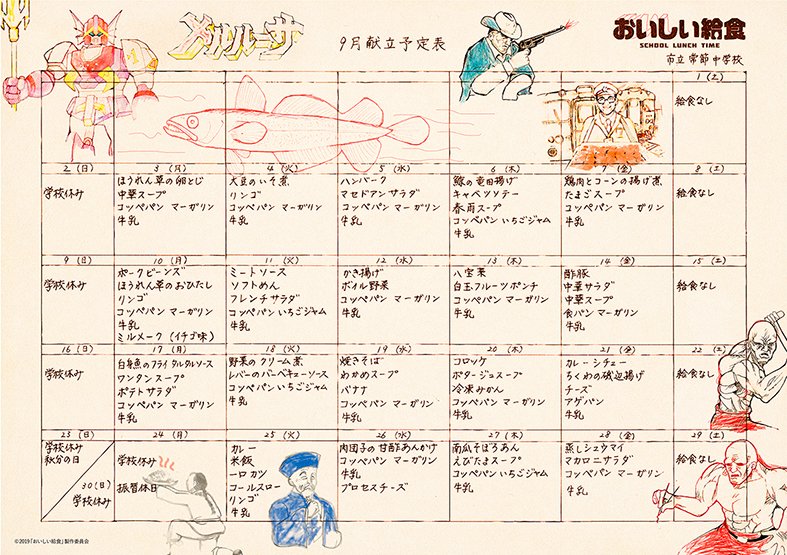 メルルーサ
9月献立予定表
おいしい給食
SCHOOL LUNCH TIME
市立常節中学校
1(土)
給食なし
2(日)
学校休み
3(月)
ほうれん草の卵とじ
中華スープ
コッペパン マーガリン
牛乳
4(火)
大豆のいそ煮
リンゴ
コッペパン マーガリン
牛乳
5(水)
ハンバーク
マセドアンサラダ
コッペパン マーガリン
牛乳
6(木)
鯨の竜田揚げ
キャベツソテー
春雨スープ
コッペパン いちごジャム
牛乳
7(金)
鶏肉とコーンの揚げ煮
たまごスープ
コッペパン マーガリン
牛乳
8(土)
給食なし
9(日)
学校休み
10(月)
ポークビーンズ
ほうれん草のおひたし
リンゴ
コッペパン マーガリン
牛乳
ミルメーク(イチゴ味)
11(火)
ミートソース
ソフトめん
フレンチサラダ
コッペパン いちごジャム
牛乳
12(水)
かき揚げ
ボイル野菜
コッペパン マーガリン
牛乳
13(木)
八宝菜
白玉フルーツポンチ
コッペパン マーガリン
牛乳
14(金)
酢豚
中華サラダ
中華スープ
食パン マーガリン
牛乳
15(土)
給食なし
16(日)
学校休み
17(月)
白身魚のフライ タルタルソース
ワンタンスープ
ポテトサラダ
コッペパン マーガリン
牛乳
18(火)
野菜のクリーム煮
レバーのバーベキューソース
コッペパン いちごジャム
牛乳
19(水)
焼きそば
わかめスープ
バナナ
コッペパン マーガリン
牛乳
20(木)
コロッケ
ポタージュスープ
冷凍みかん
コッペパン マーガリン
牛乳
21(金)
カレーシチュー
ちくわの磯辺揚げ
チーズ
アゲパン
牛乳
22(土)
給食なし
23(日)
学校休み
秋分の日
30(日)
学校休み
24(月)
学校休み
振替休日
25(火)
カレー
米飯
一口カツ
コールスロー
リンゴ
牛乳
26(水)
肉団子の甘酢あんかけ
コッペパン マーガリン
牛乳
プロセスチーズ
27(木)
南瓜そぼろあん
えびたまスープ
コッペパン いちごジャム
牛乳
28(金)
蒸しシュウマイ
マカロニサラダ
コッペパン マーガリン
牛乳
29(土)
給食なし
©2019「おいしい給食」製作委員会